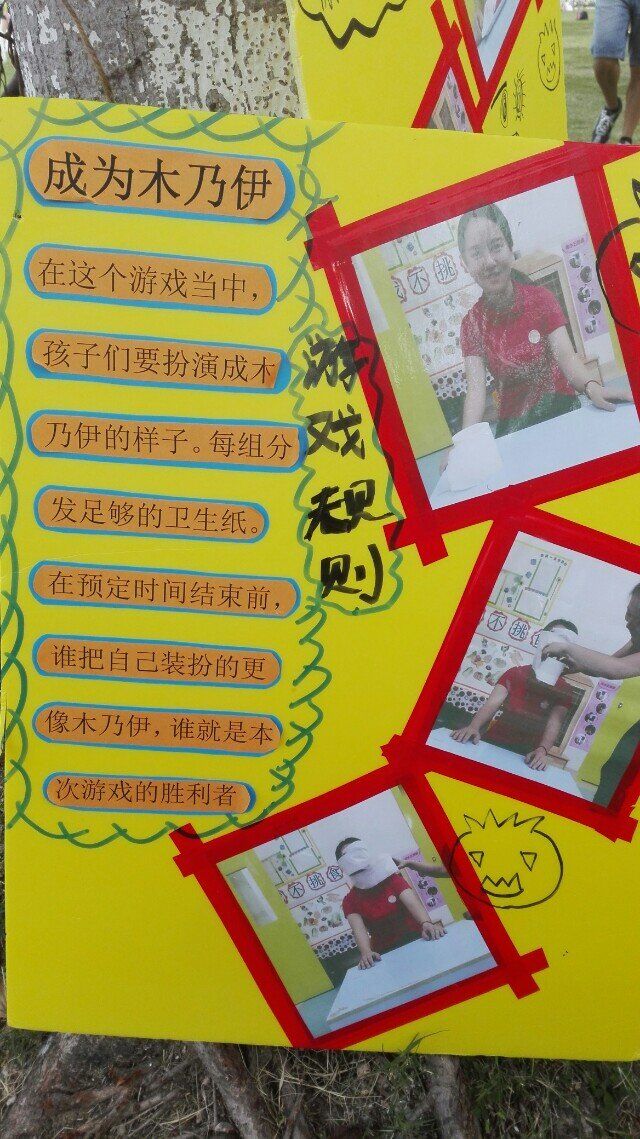 成为木乃伊
在这个游戏当中，
孩子们要扮演成木
乃伊的样子。每组分
发足够的卫生纸。
在预定时间结束前，
谁把自己装扮的更
像木乃伊，谁就是本
次游戏的胜利者
游戏规则
不挑
不挑食
不挑食